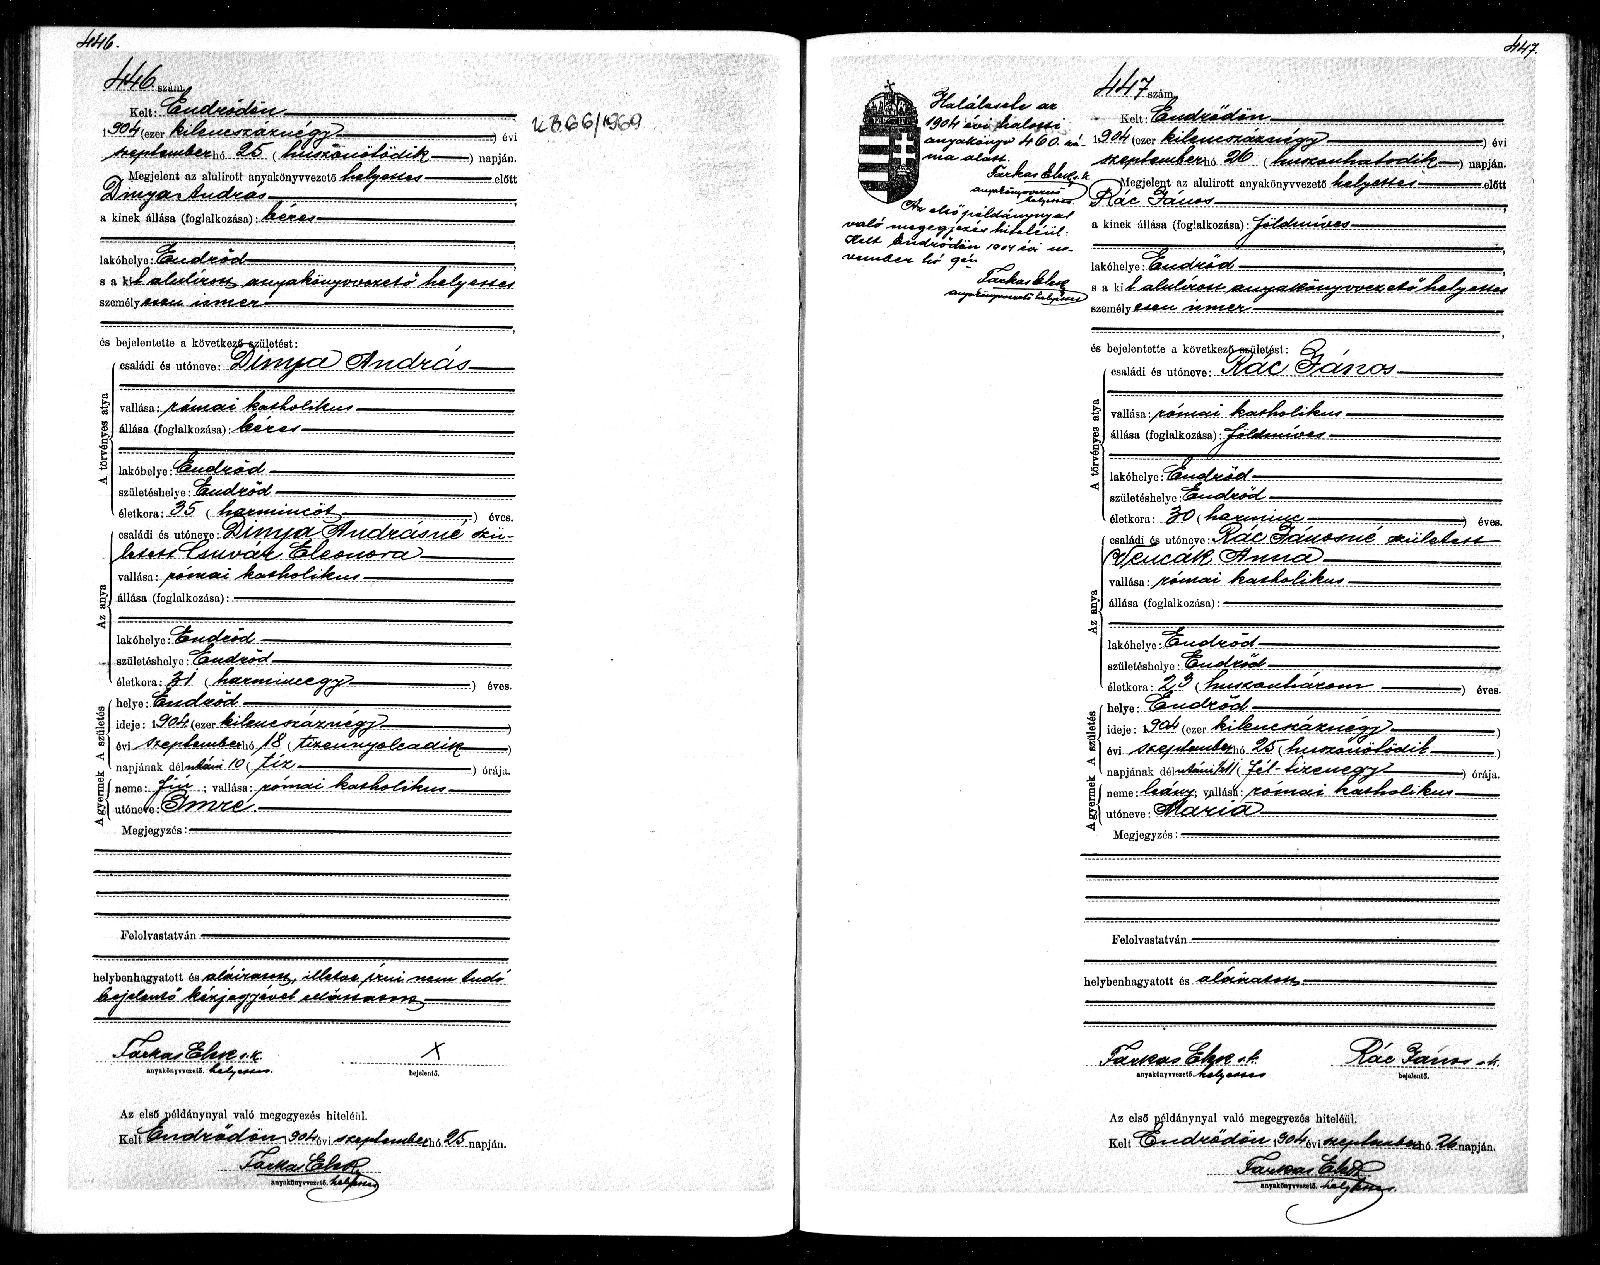 446.
446 szám.
Kelt: Endrődön
1904 (ezer kilencszáznégy) évi
szeptember hó 25 (huszonötödik) napján.
Megjelent az alulirott anyakönyvvezető helyettes előtt
Dinya András
a kinek állása (foglalkozása): béres
lakóhelye: Endrőd
s a kit alulirott anyakönyvvezető helyettes
személyesen ismer
és bejelentette a következő születést:
A törvényes atya
családi és utóneve: Dinya András
vallása: római katholikus
állása (foglalkozása): béres
lakóhelye: Endrőd
születéshelye: Endrőd
életkora: 35 (harmincöt) éves.
Az anya
családi és utóneve: Dinya Andrásné szü-
letett Csuvár Eleonora
vallása: római katholikus
állása (foglalkozása):
lakóhelye: Endrőd
születéshelye: Endrőd
életkora: 31 (harmincegy) éves.
A születés
helye: Endrőd
ideje: 1904 (ezer kilencszáznégy)
évi szeptember hó 18 (tizennyolcadik)
napjának délutáni 10 (tíz) órája.
A gyermek
neme: fiú; vallása: római katholikus
utóneve: Imre
Megjegyzés:
Felolvastatván
helybenhagyatott és aláiratott, illetve írni nem tudó
bejelentő kézjegyével elláttatott
Farkas Elek s.k. X
anyakönyvvezető. helyettes bejelentő.
Az első példánynyal való megegyezés hiteléül.
Kelt Endrődön 1904 évi szeptember hó 25 napján.
Farkas Elek
anyakönyvvezető. helyettes
UB.66/1969
447.
Halálesete az
1904 évi halotti
anyakönyv 460. szá-
ma alatt.
Farkas Elek s.k.
anyakönyvvezető
helyettes
Az első példánynyal
való megegyezés hiteléül.
Kelt Endrődön 1904 évi no-
vember hó 9én
Farkas Elek
anyakönyvvezető helyettes
447 szám.
Kelt: Endrődön
1904 (ezer kilencszáznégy) évi
szeptember hó 26 (huszonhatodik) napján.
Megjelent az alulirott anyakönyvvezető helyettes előtt
Rác János
a kinek állása (foglalkozása): földmíves
lakóhelye: Endrőd
s a kit alulirott anyakönyvvezető helyettes
személyesen ismer
és bejelentette a következő születést:
A törvényes atya
családi és utóneve: Rác János
vallása: római katholikus
állása (foglalkozása): földmíves
lakóhelye: Endrőd
születéshelye: Endrőd
életkora: 30 (harminc) éves.
Az anya
családi és utóneve: Rác Jánosné született
Vencák Anna
vallása: római katholikus
állása (foglalkozása):
lakóhelye: Endrőd
születéshelye: Endrőd
életkora: 23 (huszonhárom) éves.
A születés
helye: Endrőd
ideje: 1904 (ezer kilencszáznégy)
évi szeptember hó 25 (huszonötödik)
napjának délutáni (fél-tizenegy) órája.
A gyermek
neme: leány; vallása: római katholikus
utóneve: Mária
Megjegyzés:
Felolvastatván
helybenhagyatott és aláiratott
Farkas Elek s.k. Rác János s.k.
anyakönyvvezető helyettes bejelentő.
Az első példánynyal való megegyezés hiteléül.
Kelt Endrődön 1904 évi szeptember hó 26 napján.
Farkas Elek
anyakönyvvezető. helyettes